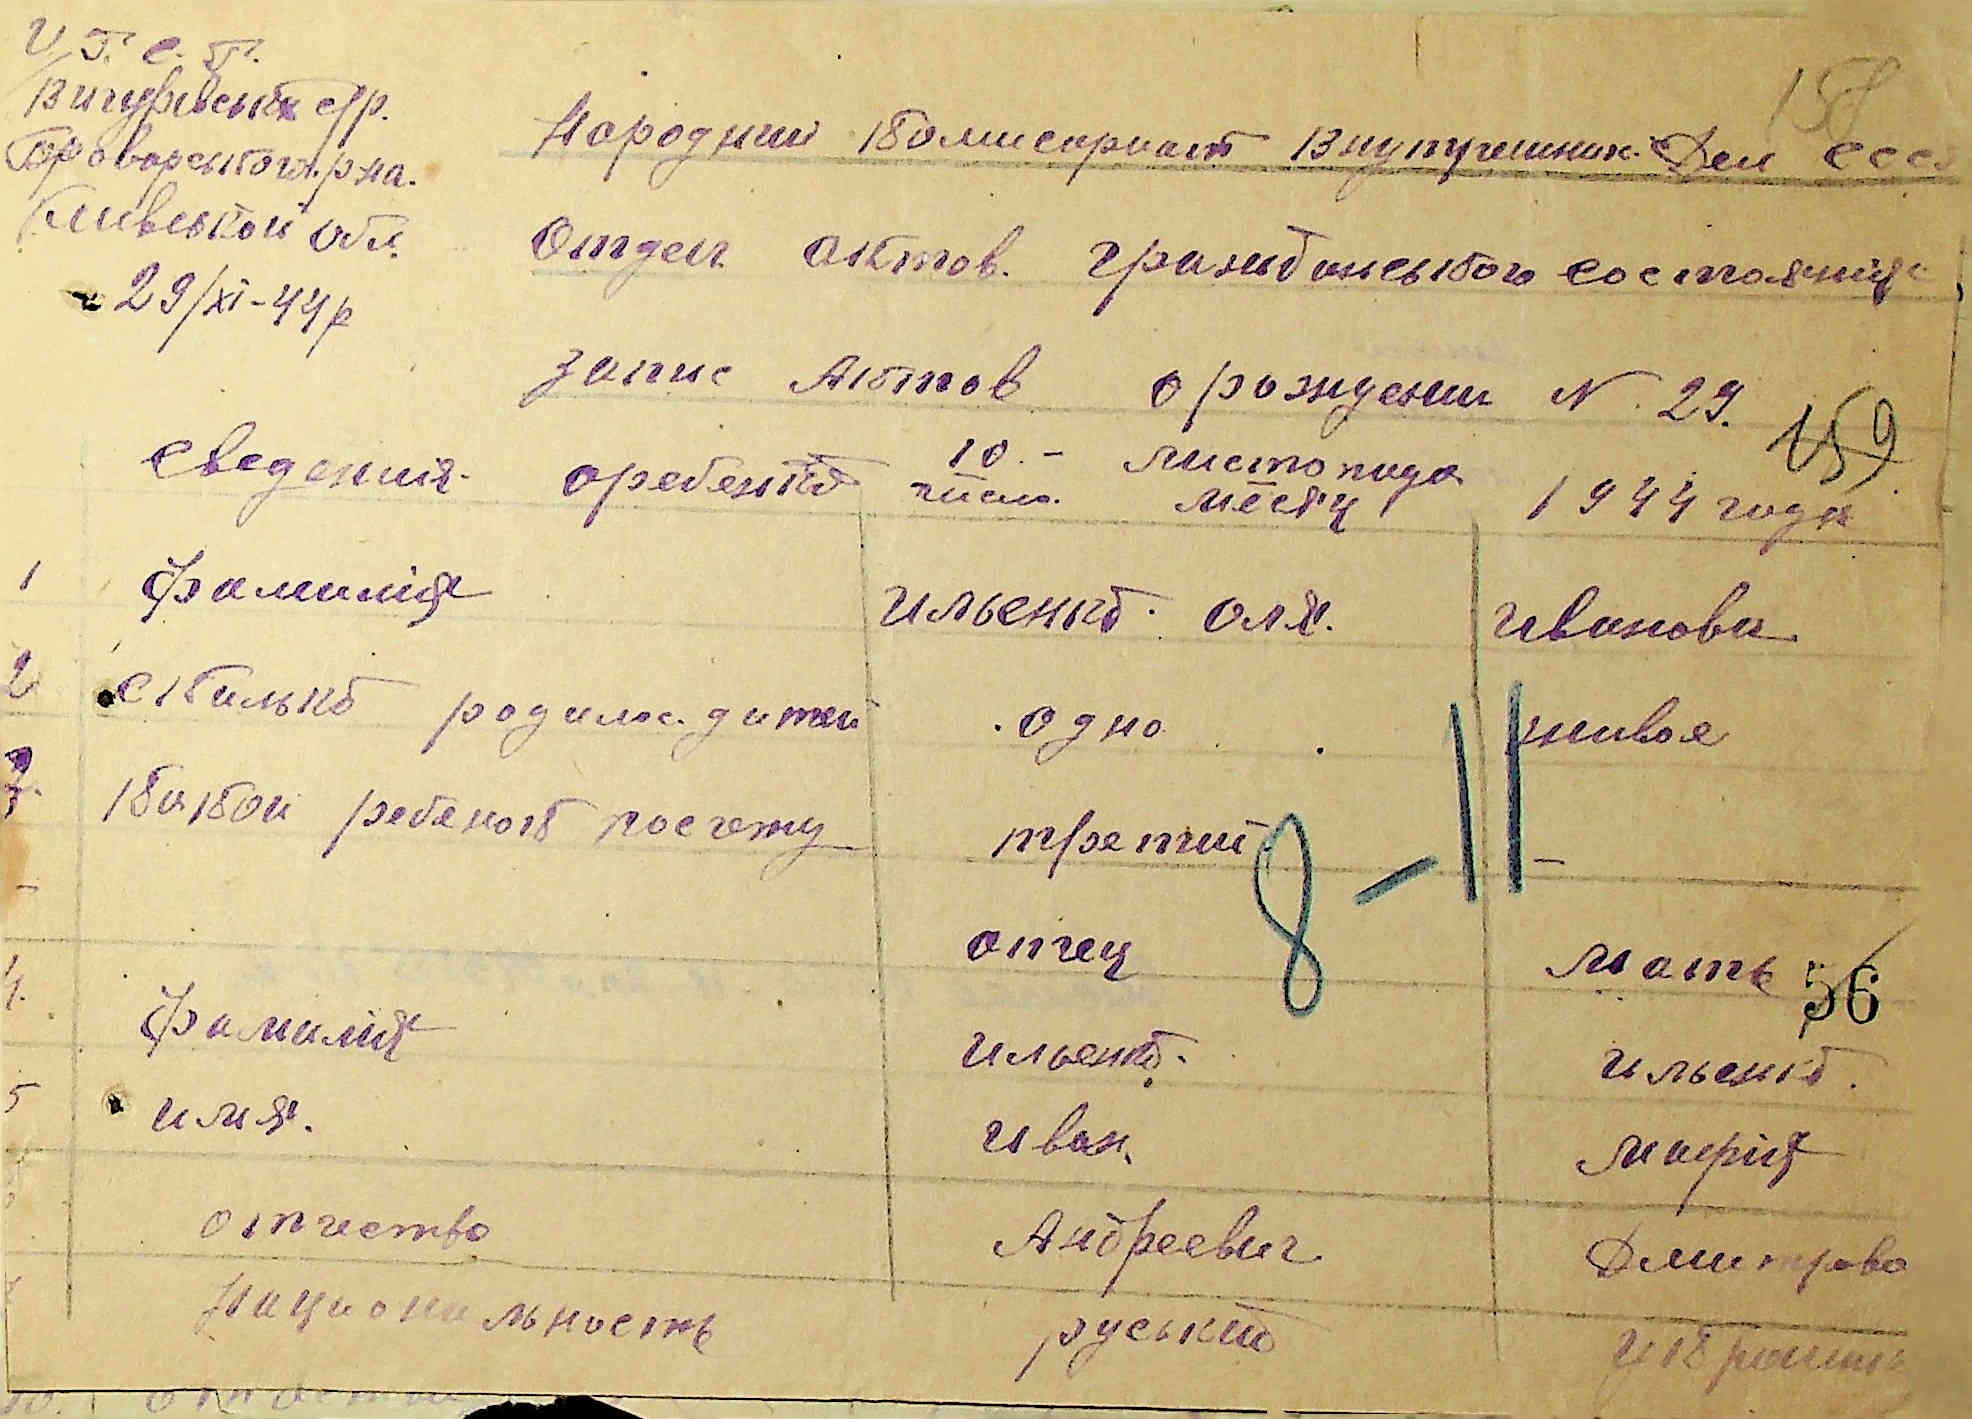 У.Р.С.Р.
Вигурівська с/р.
Броварського р-на.
Київської обл.
29/XI-44р
158
Народний Комисариат Внутрешних Дел СССР
Отдел актов. гражданского состояния
Запис Актов о рождении N. 29.
159
Сведения о ребенке 10.- листопада 1944 года
число. месяц
1 Фамилия Ильенко Оля. Иванова
2 Сколько родилос. дитей одно живоя
3. Какой ребенок посчету третий -
8-11
отец мать
56
4. Фамилия Ильенко. Ильенко.
5 имя. Иван. Мария
отчество Андреевич Дмитрова
Национальность руський